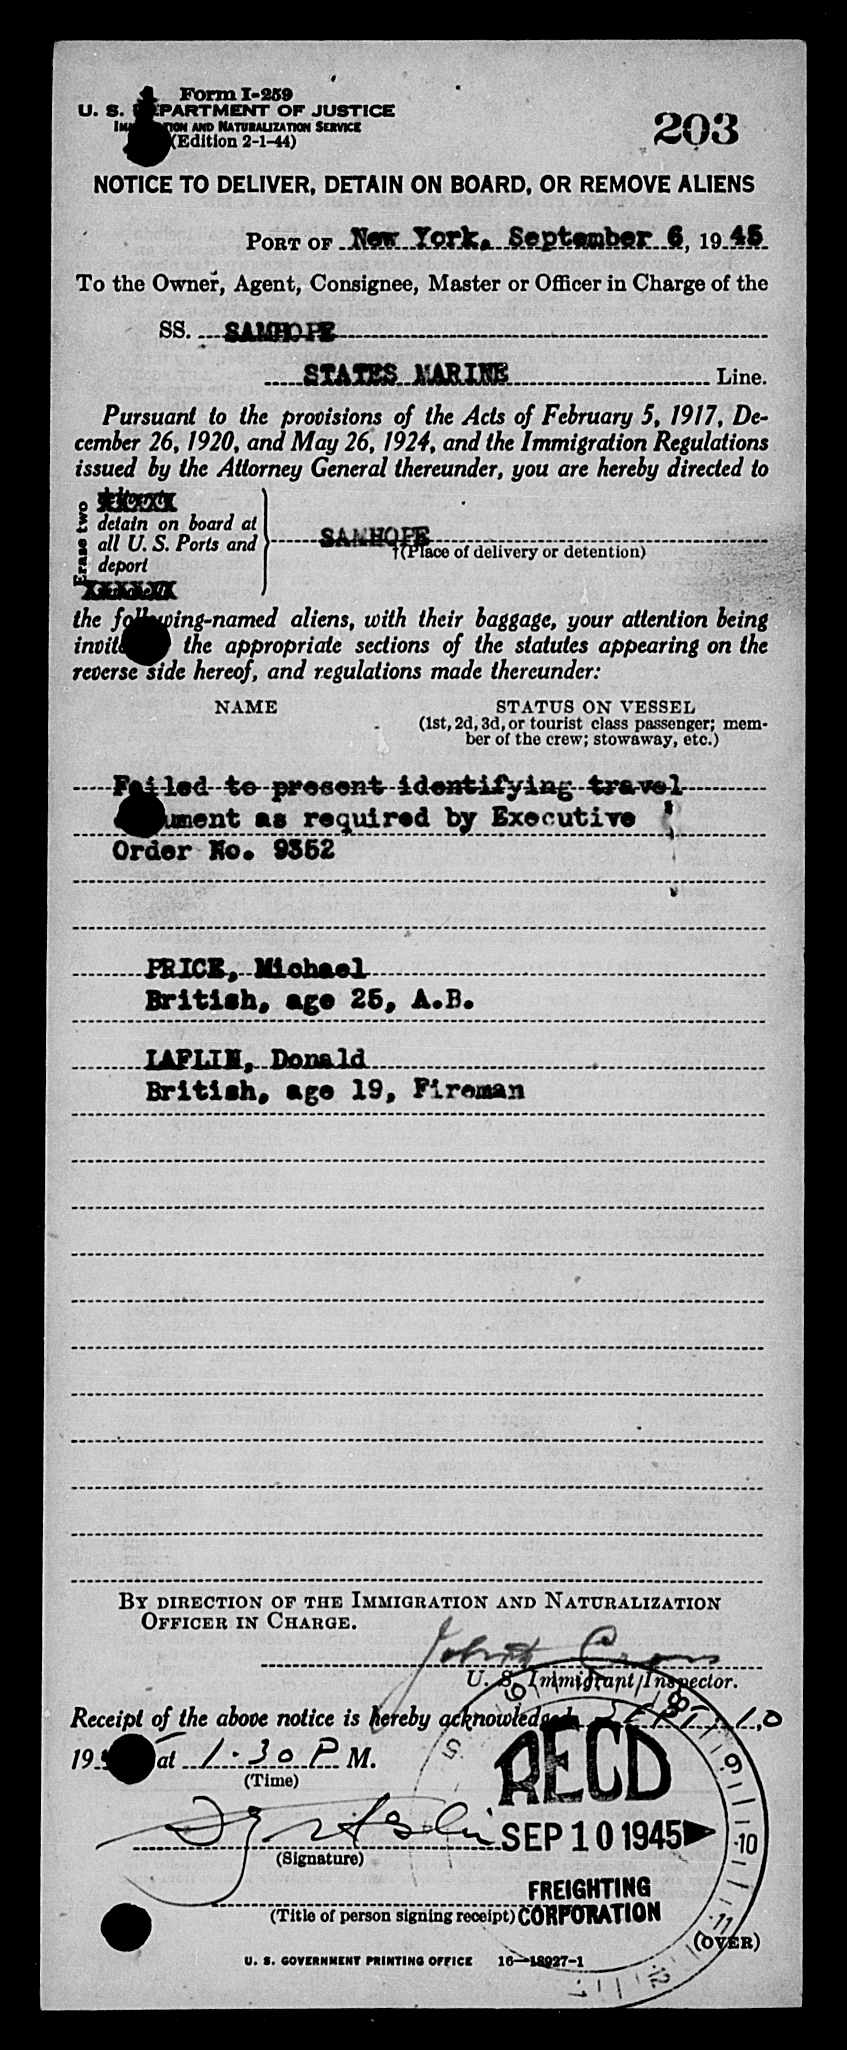 Form I-259
U. S. DEPARTMENT OF JUSTICE
IMMIGRATION AND NATURALIZATION SERVICE
(Edition 2-1-44)
203
NOTICE TO DELIVER, DETAIN ON BOARD, OR REMOVE ALIENS
PORT OF New York, September 6, 1945
To the Owner, Agent, Consignee, Master or Officer in Charge of the
SS. SAMHOPE
STATES MARINE Line.
Pursuant to the provisions of the Acts of February 5, 1917, De-
cember 26, 1920, and May 26, 1924, and the Immigration Regulations
issued by the Attorney General thereunder, you are hereby directed to
Erase two
detain on board at
all U. S. Ports and
deport
SAMHOPE
†(Place of delivery or detention)
the following-named aliens, with their baggage, your attention being
invited the appropriate sections of the statutes appearing on the
reverse side hereof, and regulations made thereunder:
NAME STATUS ON VESSEL
(1st, 2d, 3d, or tourist class passenger; mem-
ber of the crew; stowaway, etc.)
Failed to present identifying travel
document as required by Executive
Order No. 9352
PRICE, Michael
British, age 25, A.B.
LAFLIN, Donald
British, age 19, Fireman
BY DIRECTION OF THE IMMIGRATION AND NATURALIZATION
OFFICER IN CHARGE.
U. S. Immigrant Inspector.
Receipt of the above notice is hereby acknowledged SEPT. 10
19 at 1.30 P M.
(Time)
RECD
SEP 10 1945
(Signature)
FREIGHTING
(Title of person signing receipt) CORPORATION
(OVER)
U. S. GOVERNMENT PRINTING OFFICE 16—18927-1